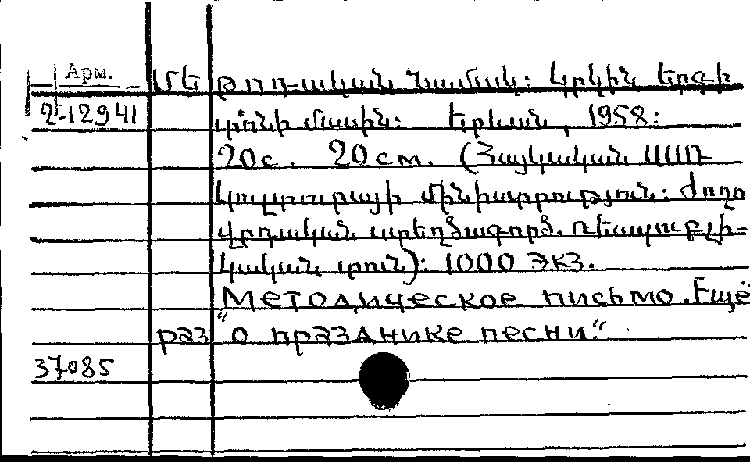 Арм.
ՄԵԹՈԴական Նամակ: Կրկին Երգի
2-12941 տոնի մասին: Երևան, 1958:
20с. 20см. (Հայկական ՍՍՌ
Կուլտուրայի մինիստրություն: Ժողո
վրդական ստեղծագործ. Ռեսպուբլի-
կական տուն): 1000 экз.
"Методическое письмо. Ещё
раз "о празднике песни."
37085